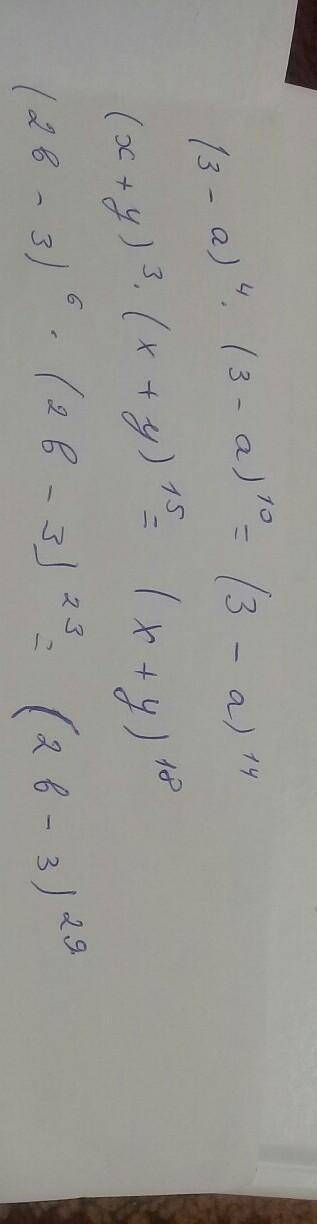 (3 - a)⁴ · (3 - a)¹⁰ = (3 - a)¹⁴
(x + y)³ · (x + y)¹⁵ = (x + y)¹⁸
(2в - 3)⁶ · (2в - 3)²³ = (2в - 3)²⁹.